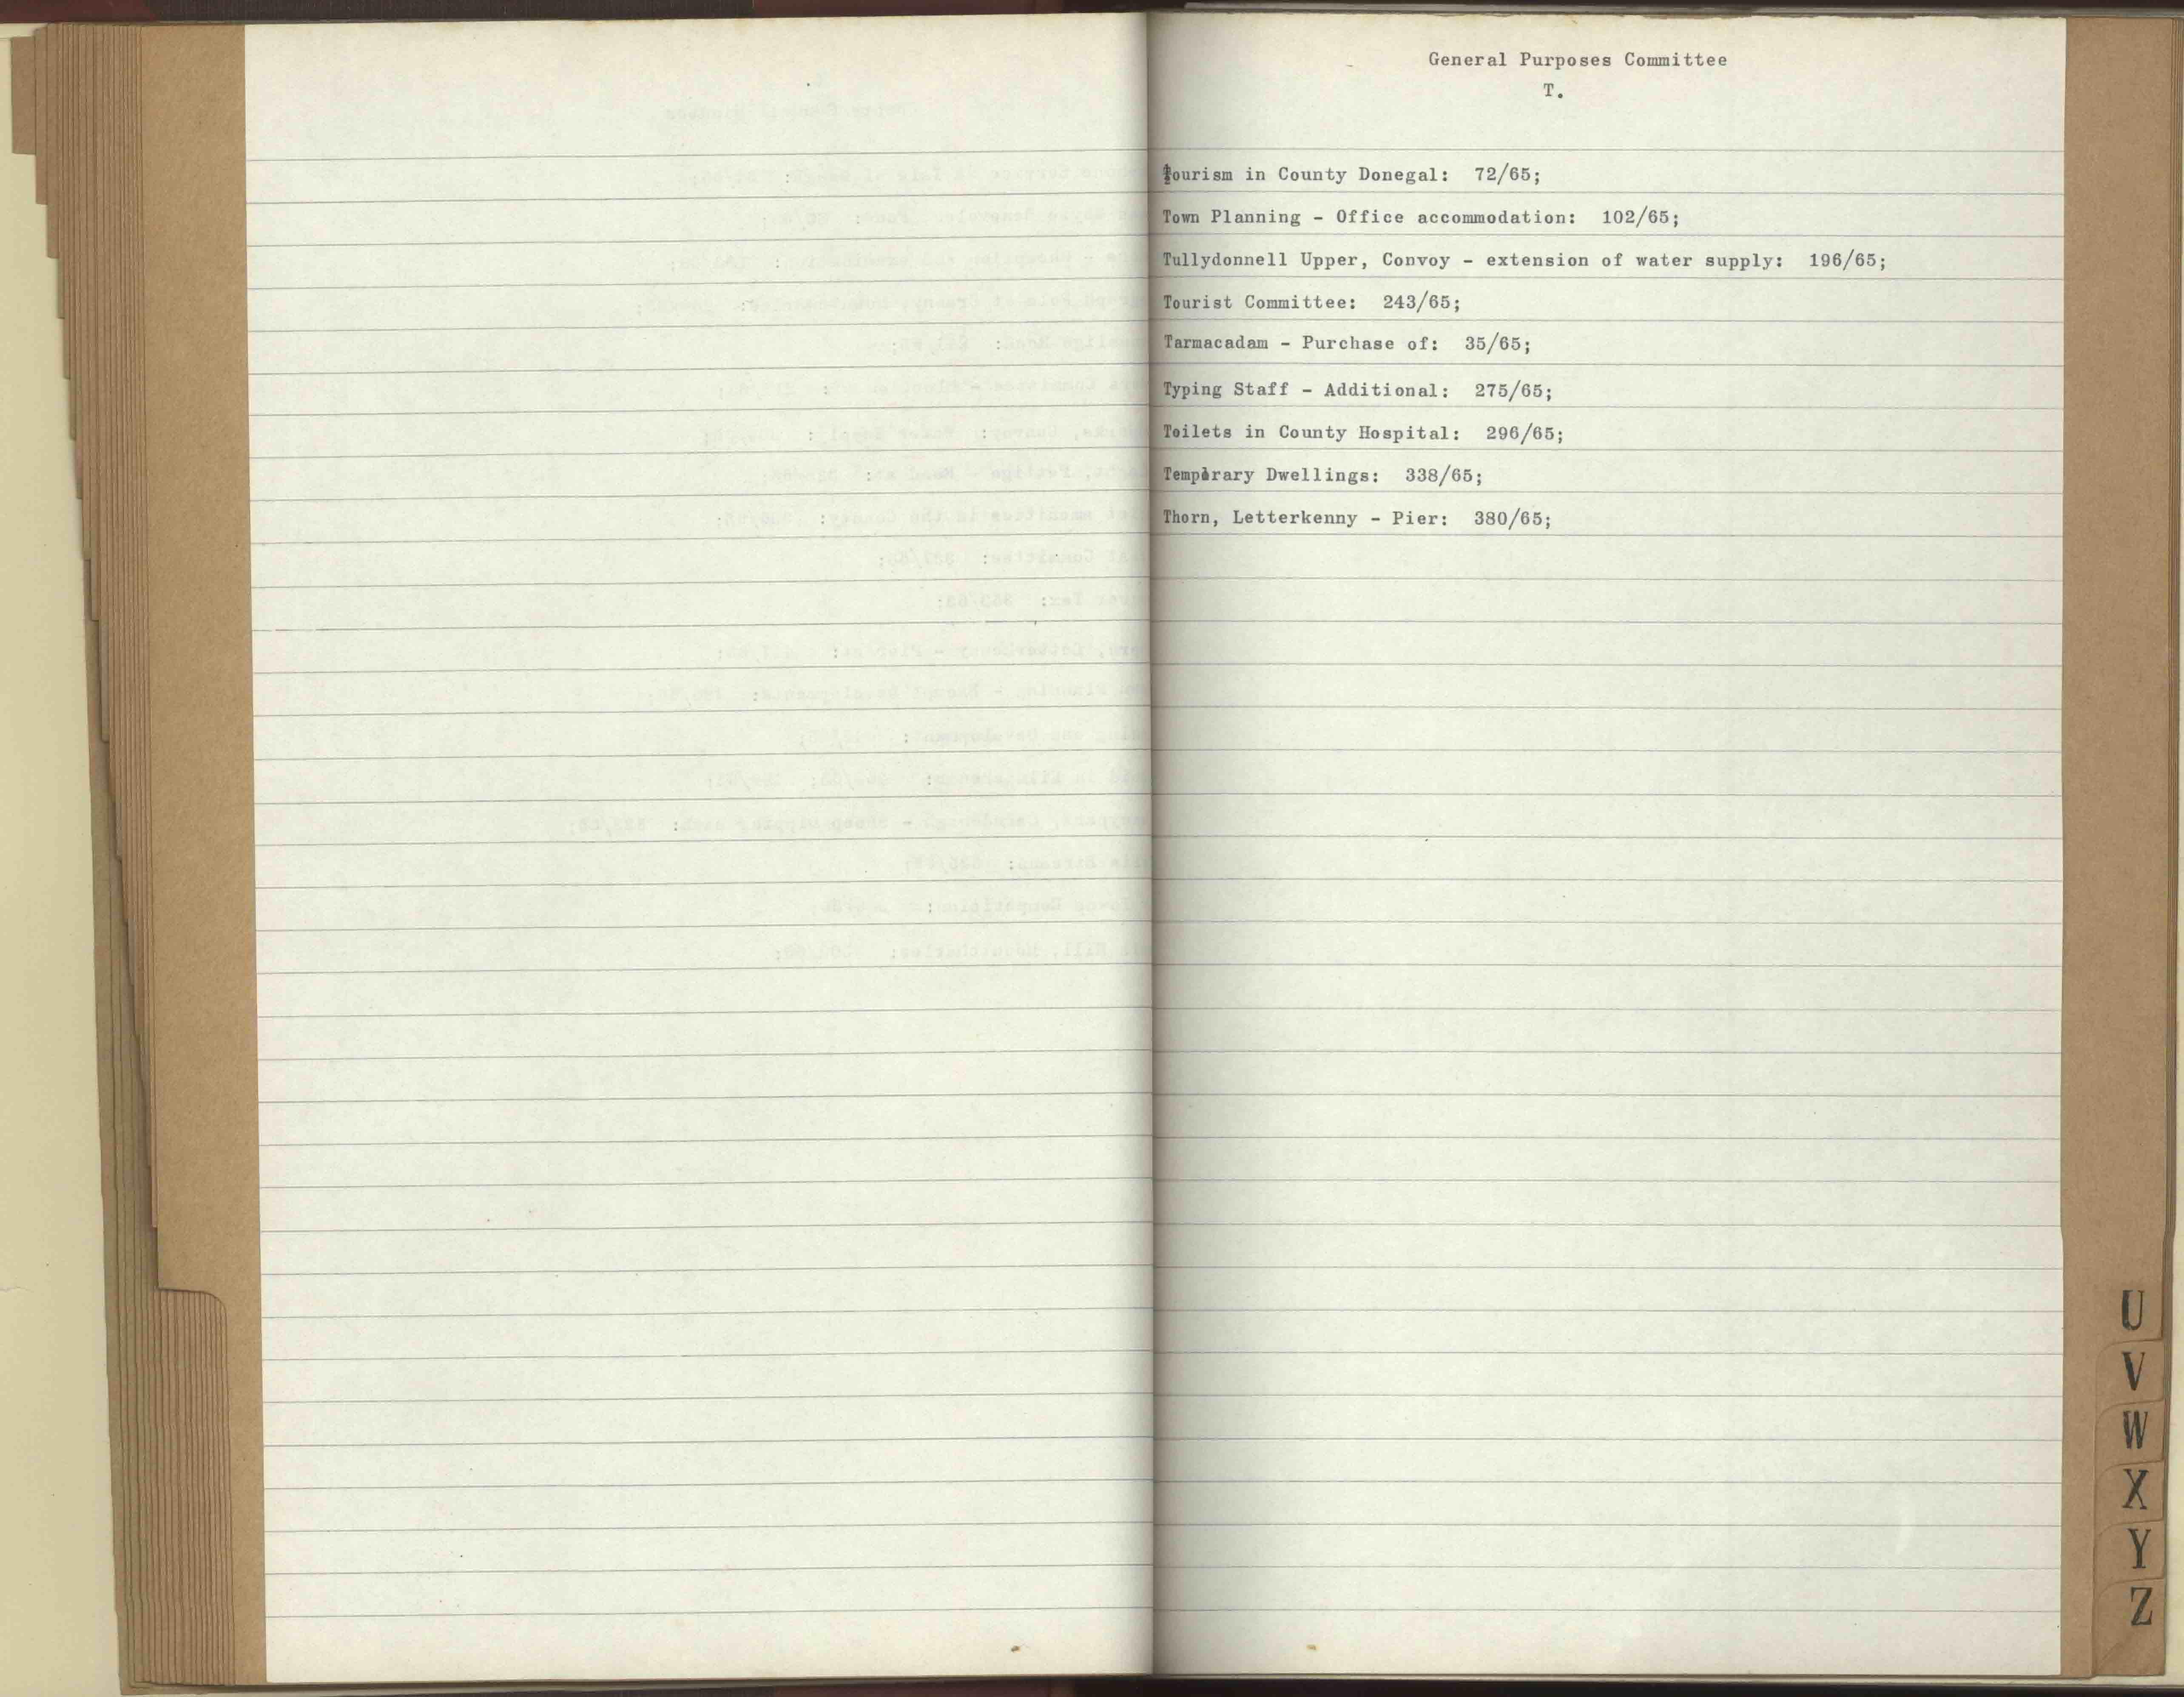 General Purposes Committee
T.
Tourism in County Donegal: 72/65;
Town Planning - Office accommodation: 102/65;
Tullydonnell Upper, Convoy - extension of water supply: 196/65;
Tourist Committee: 243/65;
Tarmacadam - Purchase of: 35/65;
Typing Staff - Additional: 275/65;
Toilets in County Hospital: 296/65;
Temporary Dwellings: 338/65;
Thorn, Letterkenny - Pier: 380/65;
U
V
W
X
Y
Z